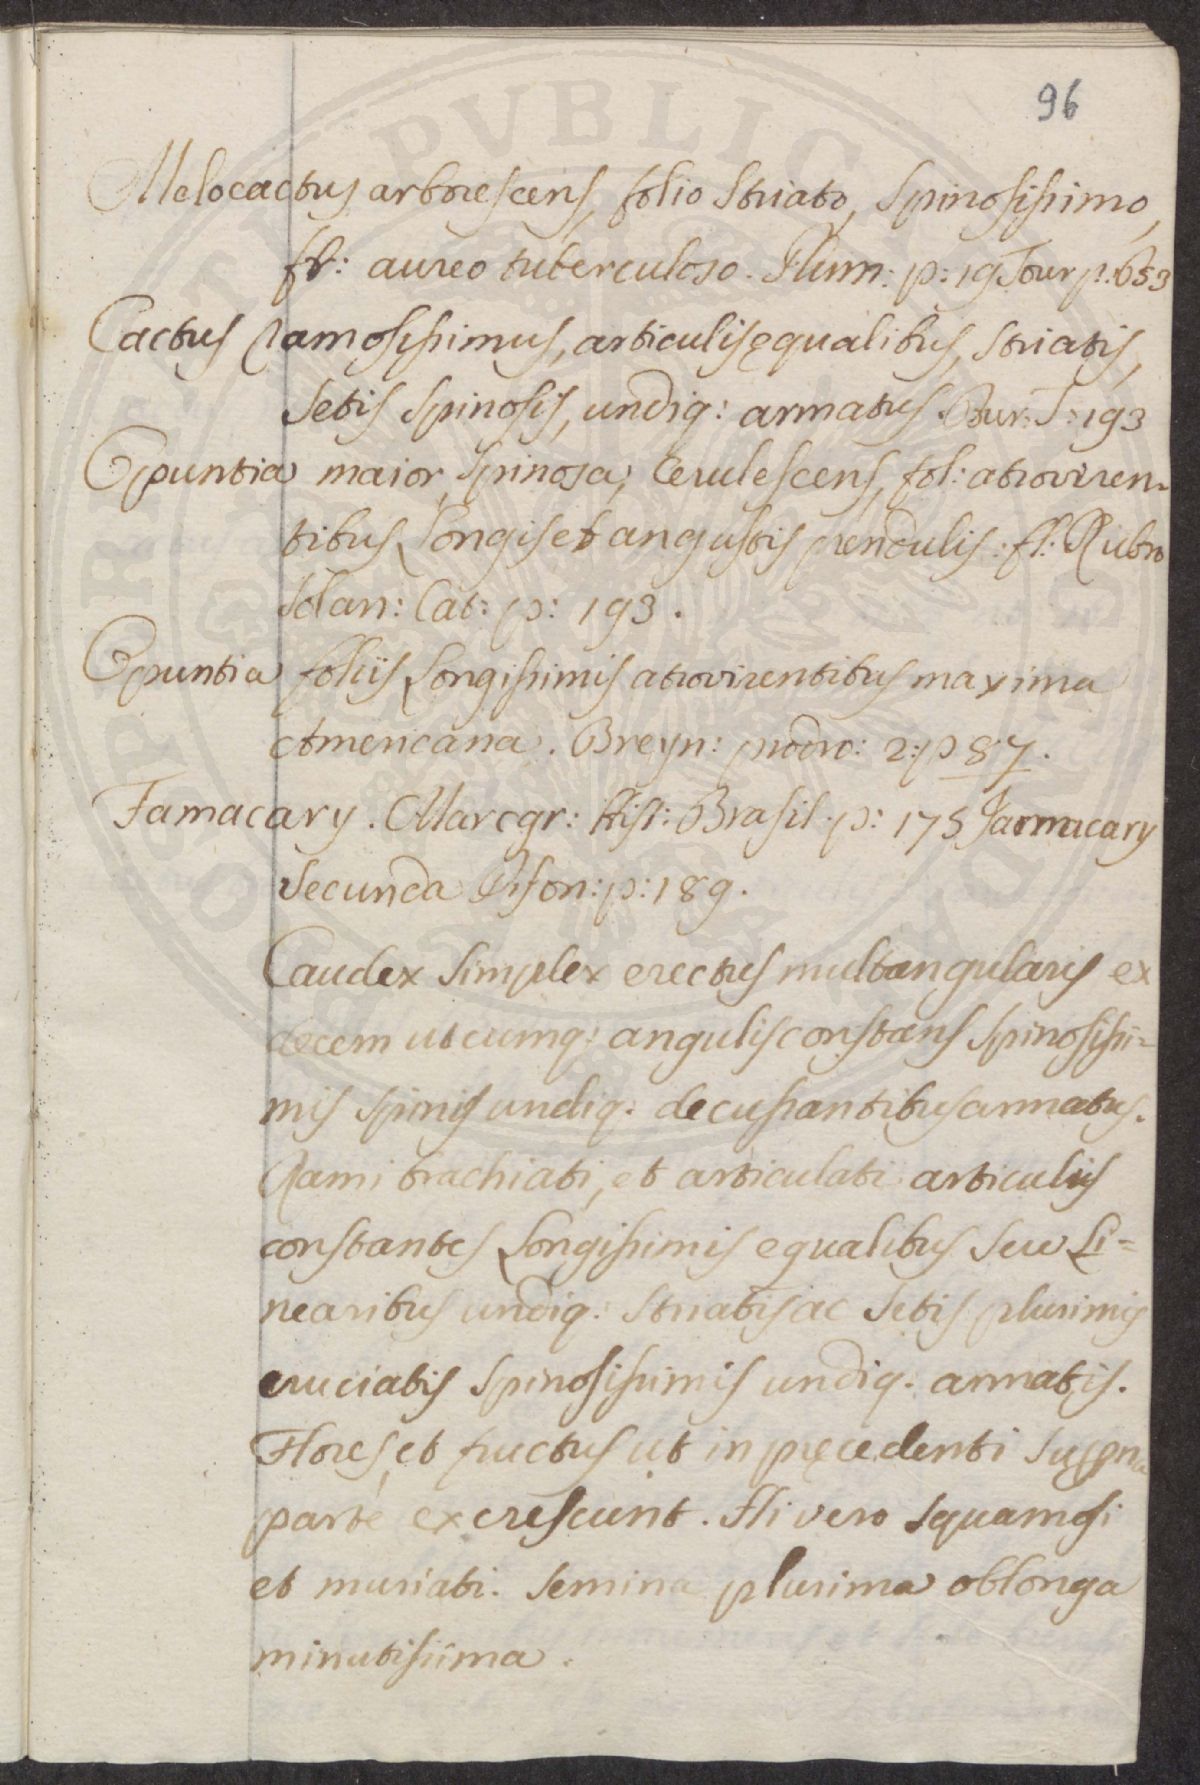 96
Melocactus arborescens, folio striato, spinosissimo,
fr: aureo tuberculoso. Plum: p: 19 Tour p: 653
Cactus Ramosissimus, articulis ęqualibus, striatis,
setis spinosis, undiq: armatus. Bur: T: 193
Opuntia maior, spinosa, Cerulescens, fol: atroviren-
tibus Longis et angustis pendulis: fl: Rubro
Sloan: Cat: p: 193.
Opuntia foliis Longissimis atrovirentibus maxima
Americana. Breyn: prodro: 2: p 87.
Famacary. Marcgr: Hist: Brasil. p: 175 Jarmacary
secunda Pison: p: 189.
Caudex simplex erectus multangularis ex
decem utcumq: angulis constans spinosissi-
mis spinis undiq. decussantibus armatus.
Rami brachiati, et articulati articulis
constantes Longissimis equalibus seu Li=
nearibus undiq: striatis ac setis plurimis
cruciatis spinosissimis undiq. armatis.
Flores, et fructus ut in pręcedenti
parte excrescunt. Hi vero squamosi
et muriati. semina plurima oblonga
minutissima.
PVBLIC